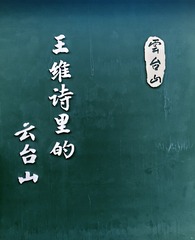 雲台山
王维诗里的
云台山